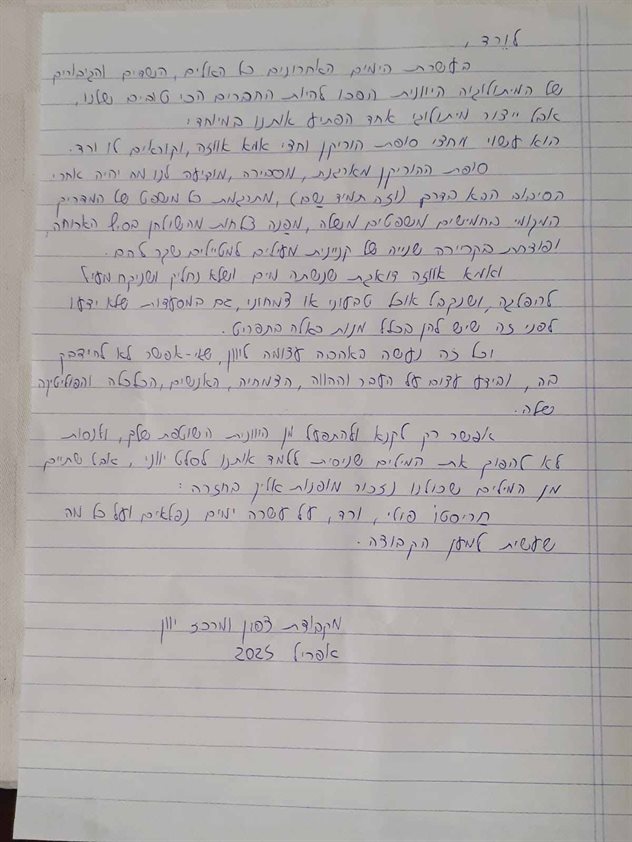 לוֶרד,
בעשרת הימים האחרונים כל האלים, השדים והגיבורים
של המיתולוגיה היוונית הפכו להיות החברים הכי טובים שלנו,
אבל ייצור מיתולוגי אחד הפתיע אותנו במיוחד:
הוא עשוי מחצי סופת הוריקן וחצי אמא אווזה, וקוראים לו ורד.
סופת ההוריקן מארגנת, מסבירה, מודיעה לנו מה יהיה אחרי
הסיבוב הבא בדרך (וזה תמיד שָם), מתרגמת כל משפט של המדריך
המקומי בחמישים משפטים משלה, מפַנה צלחות מהשולחן בסוף הארוחה,
ופותחת בקריירה שנייה של קניינית מעילים למטיילים שקר להם.
ואמא אווזה דואגת שנשתה מים ושלא נחליק ושניקח מעיל
להפלגה, ושנקבל אוכל טבעוני או צמחוני, גם במסעדות שלא ידעו
לפני זה שיש להן בכלל מנות כאלה בתפריט.
וכל זה נעשה באהבה עצומה ליוון, שאי-אפשר לא להידבק
בה, ובידע עצום על העבר וההווה, הצמחיה, האנשים, הכלכלה והפוליטיקה
שלה.
אפשר רק לקנא ולהתפעל מן היוונית השוטפת שלך, ולנסות
לא להפוך את המילים שניסית ללמד אותנו לסלט יווני, אבל שתיים
מן המילים שכולנו נזכור מופנות אלייך בחזרה:
חָריסטוֹ פולי, ורד, על עשרה ימים נפלאים ועל כל מה
שעשית למען הקבוצה.
מקבוצת צפון ומרכז יוון
אפריל 2025